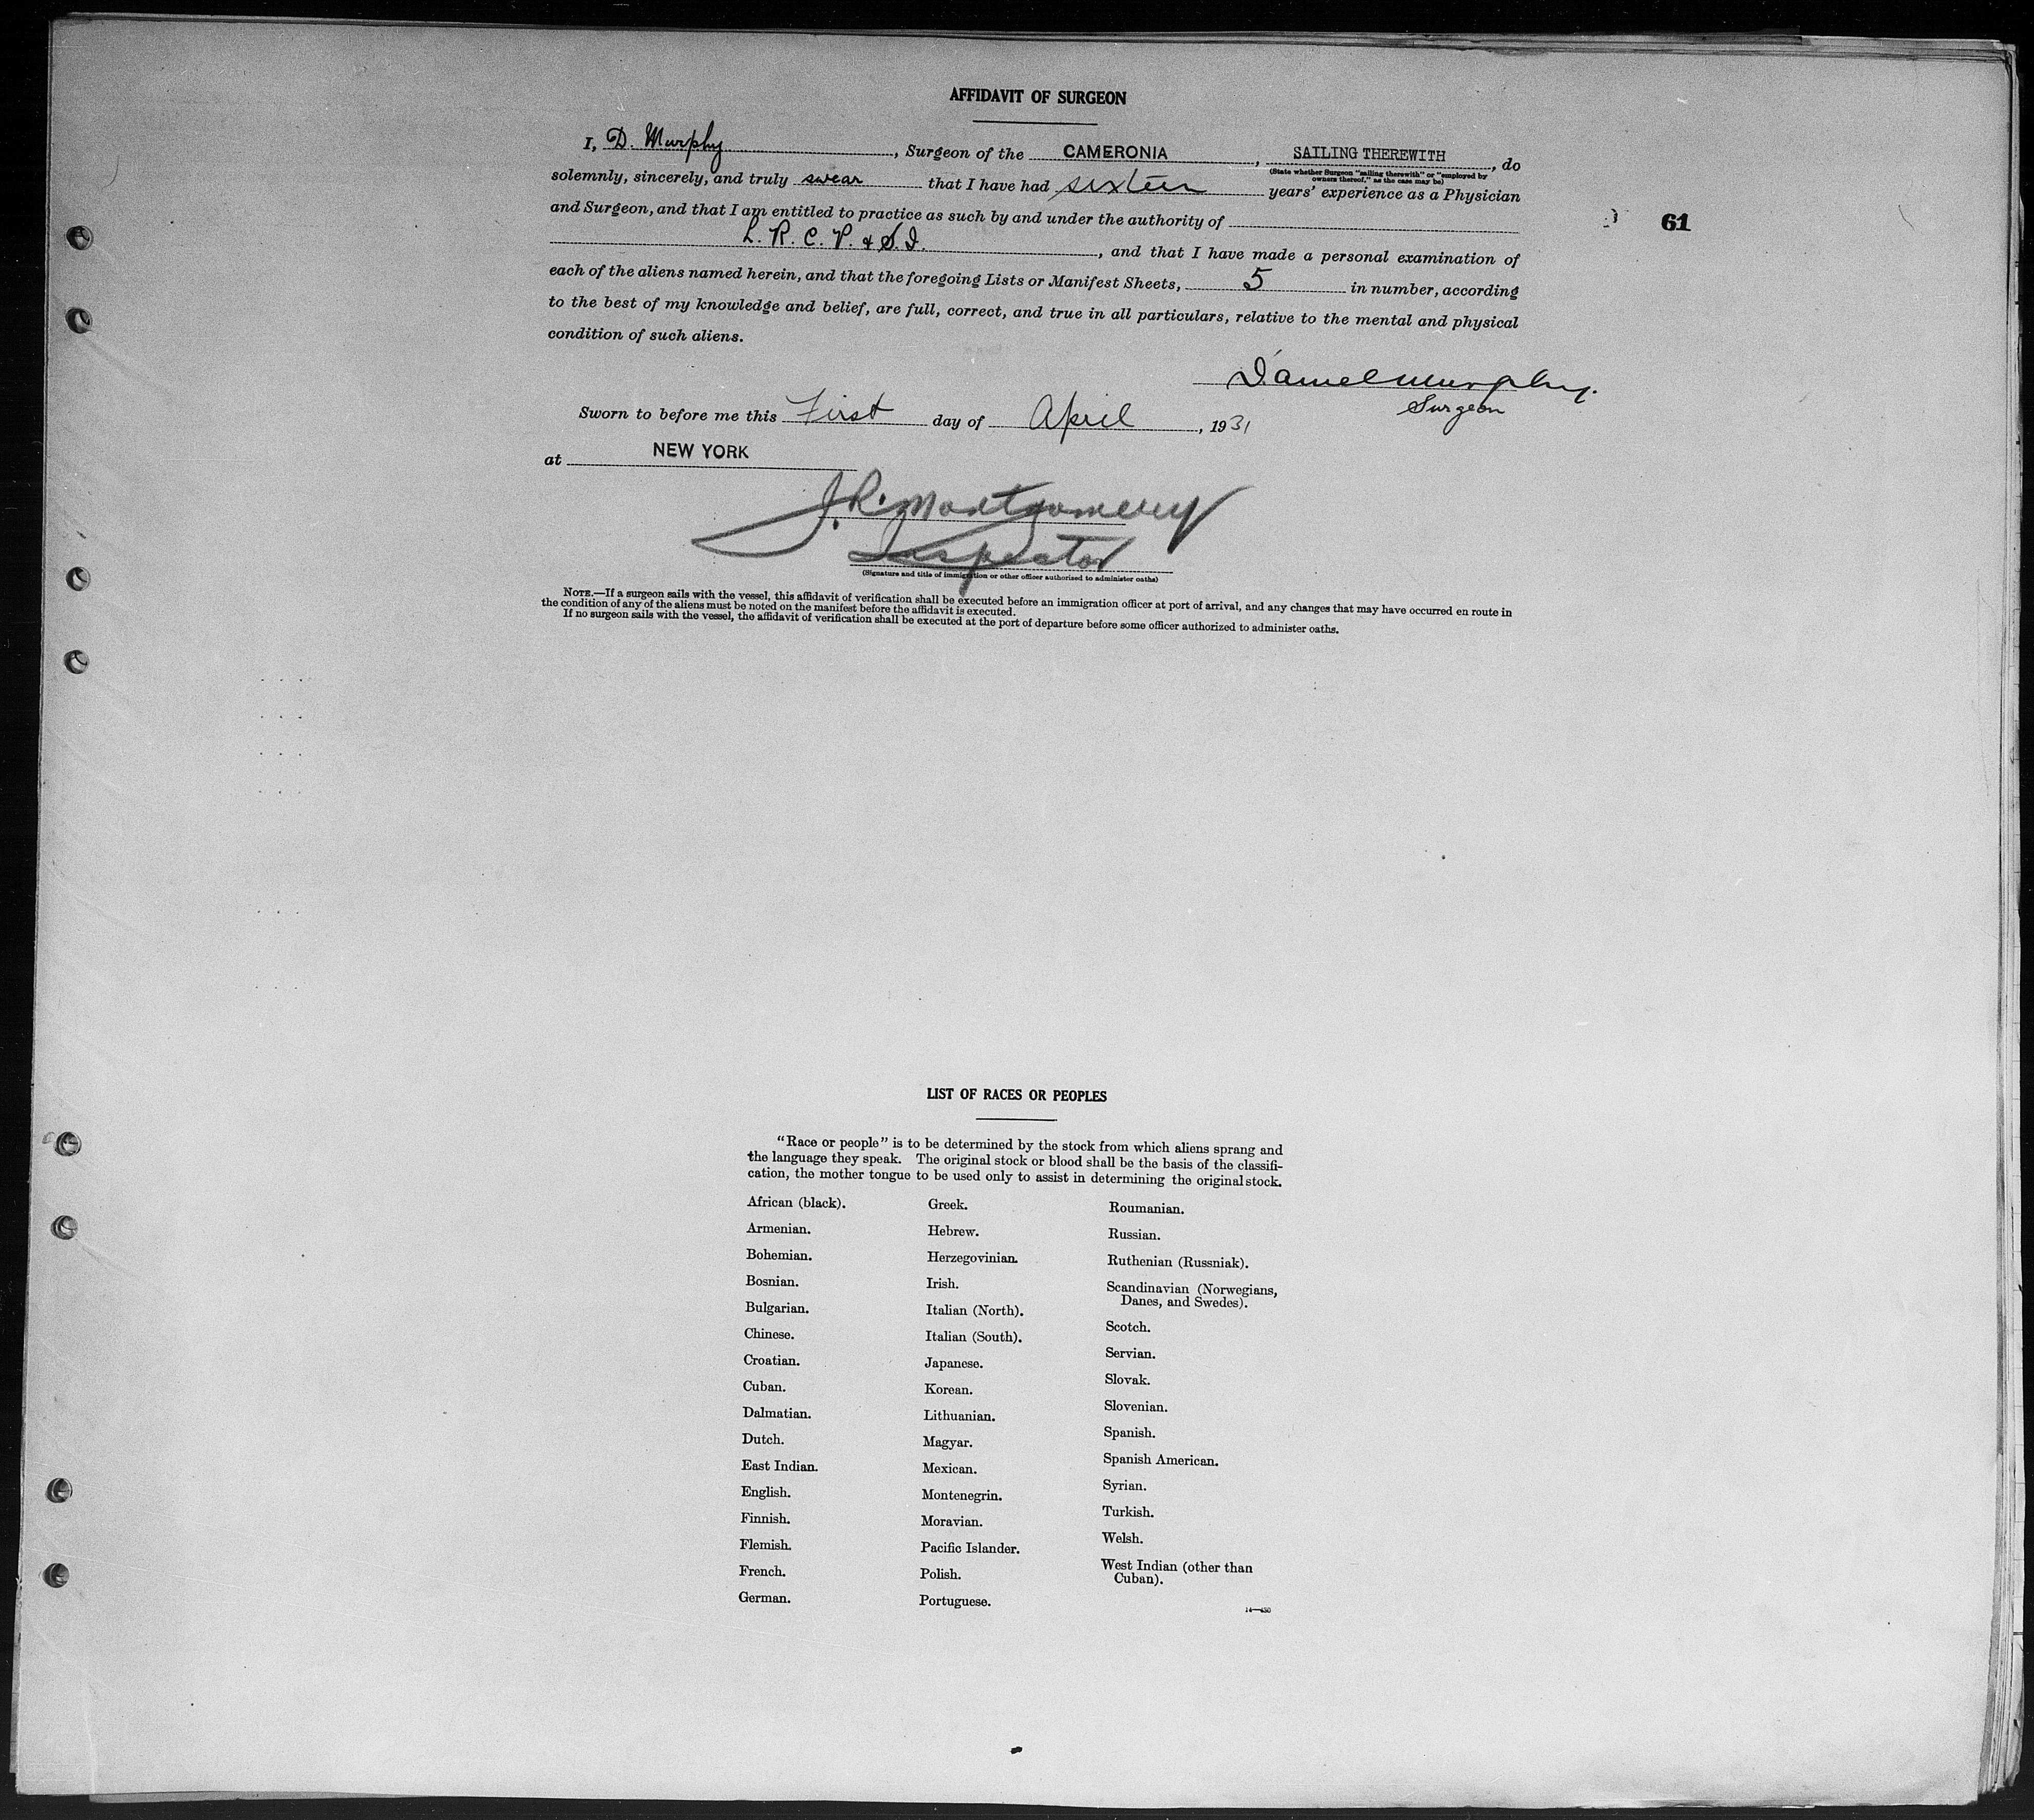 AFFIDAVIT OF SURGEON
I, D. Murphy, Surgeon of the CAMERONIA, SAILING THEREWITH, do
(State whether Surgeon "sailing therewith" or "employed by
owners thereof," as the case may be)
solemnly, sincerely, and truly swear that I have had sixteen years' experience as a Physician
and Surgeon, and that I am entitled to practice as such by and under the authority of
61
L. R. C. P. & S. I., and that I have made a personal examination of
each of the aliens named herein, and that the foregoing Lists or Manifest Sheets, 5 in number, according
to the best of my knowledge and belief, are full, correct, and true in all particulars, relative to the mental and physical
condition of such aliens.
Daniel Murphy.
Surgeon
Sworn to before me this First day of April, 1931
at NEW YORK
J. R. Montgomery
Inspector
(Signature and title of immigration or other officer authorized to administer oaths)
NOTE.—If a surgeon sails with the vessel, this affidavit of verification shall be executed before an immigration officer at port of arrival, and any changes that may have occurred en route in
the condition of any of the aliens must be noted on the manifest before the affidavit is executed.
If no surgeon sails with the vessel, the affidavit of verification shall be executed at the port of departure before some officer authorized to administer oaths.
LIST OF RACES OR PEOPLES
"Race or people" is to be determined by the stock from which aliens sprang and
the language they speak. The original stock or blood shall be the basis of the classifi-
cation, the mother tongue to be used only to assist in determining the original stock.
African (black).
Armenian.
Bohemian.
Bosnian.
Bulgarian.
Chinese.
Croatian.
Cuban.
Dalmatian.
Dutch.
East Indian.
English.
Finnish.
Flemish.
French.
German.
Greek.
Hebrew.
Herzegovinian.
Irish.
Italian (North).
Italian (South).
Japanese.
Korean.
Lithuanian.
Magyar.
Mexican.
Montenegrin.
Moravian.
Pacific Islander.
Polish.
Portuguese.
Roumanian.
Russian.
Ruthenian (Russniak).
Scandinavian (Norwegians,
Danes, and Swedes).
Scotch.
Servian.
Slovak.
Slovenian.
Spanish.
Spanish American.
Syrian.
Turkish.
Welsh.
West Indian (other than
Cuban).